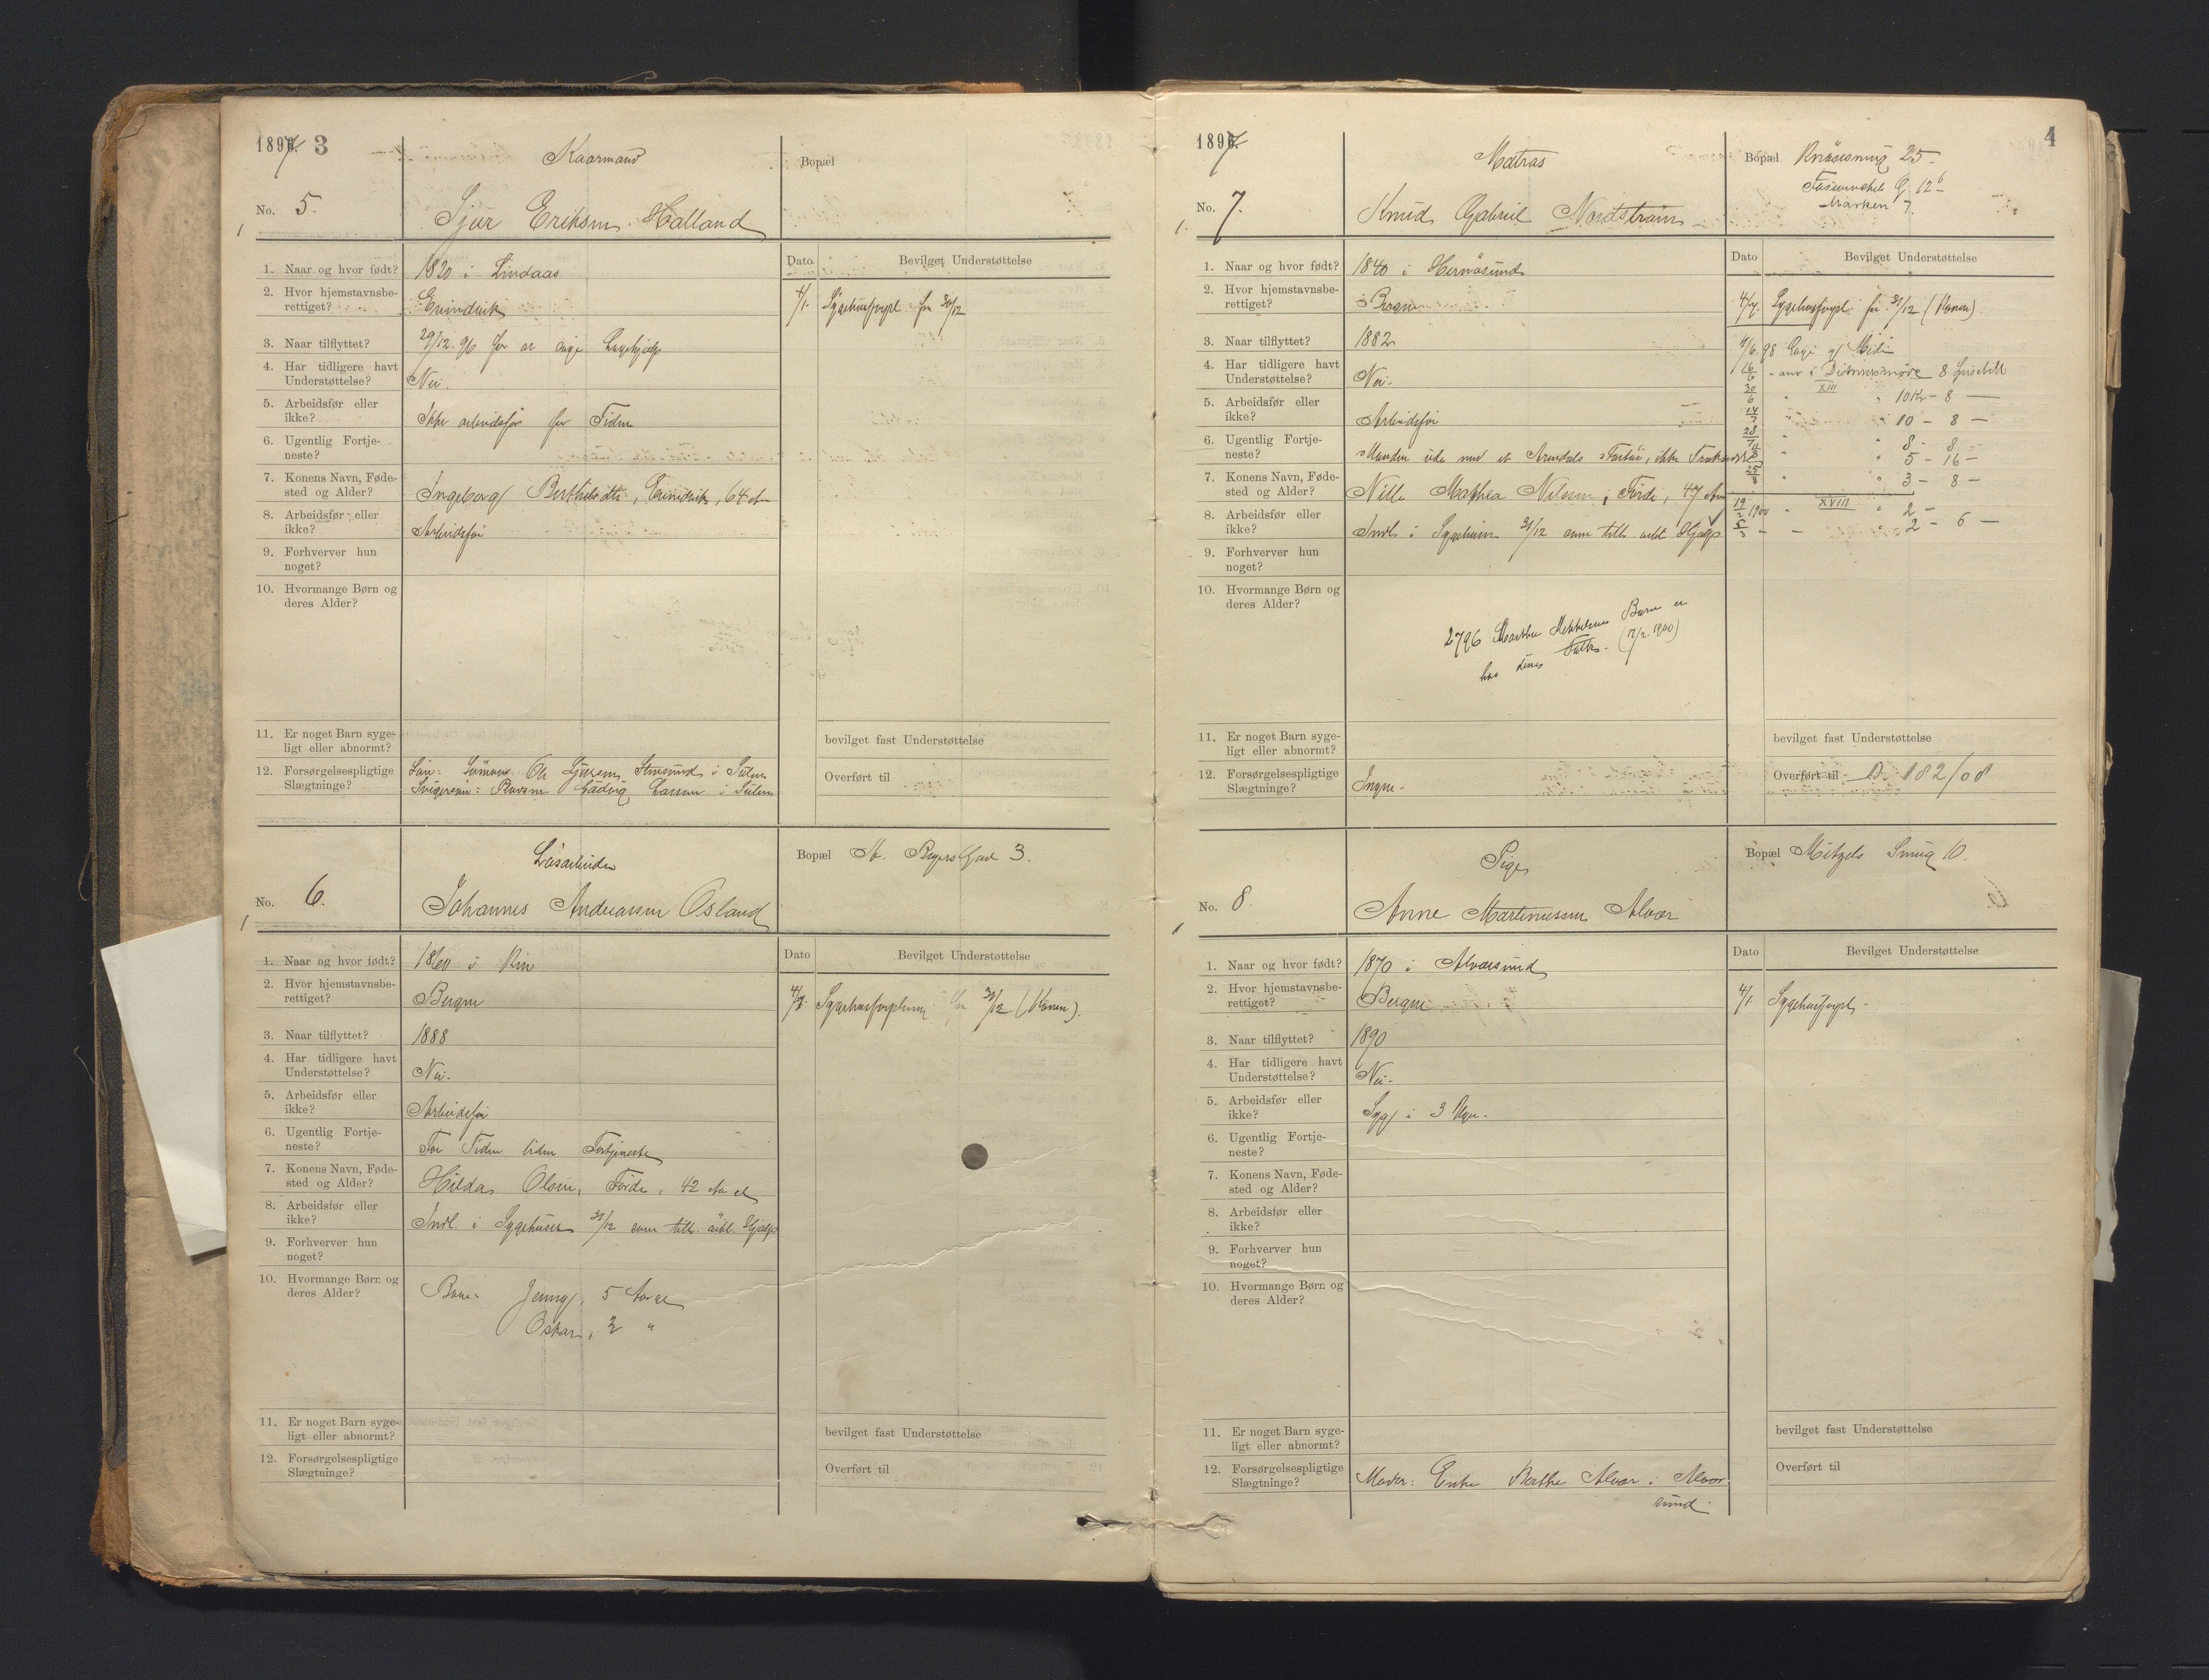 1897. 3
Kaarmand
Bopæl
No. 5.
Sjur Eriksen Halland
1. Naar og hvor født? 1820 i Lindaas
Dato Bevilget Understøttelse
2. Hvor hjemstavnsbe-
rettiget? Evindvik
4/1. Sygehusforpl. fra 30/12
3. Naar tilflyttet? 29/12. 96 for at søge Lægehjælp
4. Har tidligere havt
Understøttelse? Nei.
5. Arbeidsfør eller
ikke? Ikke arbeidsfør for Tiden
6. Ugentlig Fortje-
neste?
7. Konens Navn, Føde-
sted og Alder? Ingeborg Berthelsdtr, Evindvik, 64 Aar
8. Arbeidsfør eller
ikke? Arbeidsfør
9. Forhverver hun
noget?
10. Hvormange Børn og
deres Alder?
11. Er noget Barn syge-
ligt eller abnormt?
bevilget fast Understøttelse
12. Forsørgelsespligtige
Slægtninge? Søn: Sømand Ole Sjursen, Stensund i Sulen
Svigersøn: Ludvig Larsen i Sulen
Overført til
Løsarbeider
Bopæl St. Beyers Gade 3.
No. 6.
Johannes Andreassen Osland
1. Naar og hvor født? 1860 i Kin
Dato Bevilget Understøttelse
2. Hvor hjemstavnsbe-
rettiget? Bergen
4/1. Sygehusforplejning fra 31/12 (Konen).
3. Naar tilflyttet? 1888
4. Har tidligere havt
Understøttelse? Nei.
5. Arbeidsfør eller
ikke? Arbeidsfør
6. Ugentlig Fortje-
neste? For Tiden liden Fortjeneste
7. Konens Navn, Føde-
sted og Alder? Hilda Olsen, Førde, 42 Aar gl
8. Arbeidsfør eller
ikke? Indl. i Sygehuset 31/12 som tiltr. øiebl. Hjælp
9. Forhverver hun
noget?
10. Hvormange Børn og
deres Alder? Børn: Jenny, 5 Aar gl
Oskar, 2 "
11. Er noget Barn syge-
ligt eller abnormt?
bevilget fast Understøttelse
12. Forsørgelsespligtige
Slægtninge?
Overført til
1897. 4
Matros
Bopæl Knøsesmug 25.
Marken 7.
No. 7.
Knud Gabriel Nordstrøm
1. Naar og hvor født? 1840 i Hernøsund
Dato Bevilget Understøttelse
2. Hvor hjemstavnsbe-
rettiget? Bergen
4/1. Sygehusforpl. fra 31/12 (Konen).
3. Naar tilflyttet? 1882
4. Har tidligere havt
Understøttelse? Nei.
8 Spisebill
XIII
10 Kr - 8 —
10 - 8 —
5. Arbeidsfør eller
ikke? Arbeidsfør
6. Ugentlig Fortje-
neste? Manden ude med et Arendals Fartøi, ikke
8 - 8 -
5 - 16 -
7. Konens Navn, Føde-
sted og Alder? Nille Mathea Nilsen, Førde, 47 Aar
3 - 8 -
XVIII
8. Arbeidsfør eller
ikke? Indl. i Sygehuset 31/12 som tiltr. øiebl. Hjælp
19/2 1900 " 2 -
2 - 6 —
9. Forhverver hun
noget?
10. Hvormange Børn og
deres Alder?
2796 Marthe Mikkelsens Barn er
hos denes (17/2 1900)
11. Er noget Barn syge-
ligt eller abnormt?
bevilget fast Understøttelse
12. Forsørgelsespligtige
Slægtninge? Ingen.
Overført til D. 182/08
Pige
Bopæl Mitzels Smug 10.
No. 8.
Anne Martinussen Alver
1. Naar og hvor født? 1870 i Alversund
Dato Bevilget Understøttelse
2. Hvor hjemstavnsbe-
rettiget? Bergen
4/1. Sygehusforpl.
3. Naar tilflyttet? 1890
4. Har tidligere havt
Understøttelse? Nei.
5. Arbeidsfør eller
ikke? Syg i 3 Uger.
6. Ugentlig Fortje-
neste?
7. Konens Navn, Føde-
sted og Alder?
8. Arbeidsfør eller
ikke?
9. Forhverver hun
noget?
10. Hvormange Børn og
deres Alder?
11. Er noget Barn syge-
ligt eller abnormt?
bevilget fast Understøttelse
12. Forsørgelsespligtige
Slægtninge? Moder: Enke Marthe Alver i Alver
sund.
Overført til